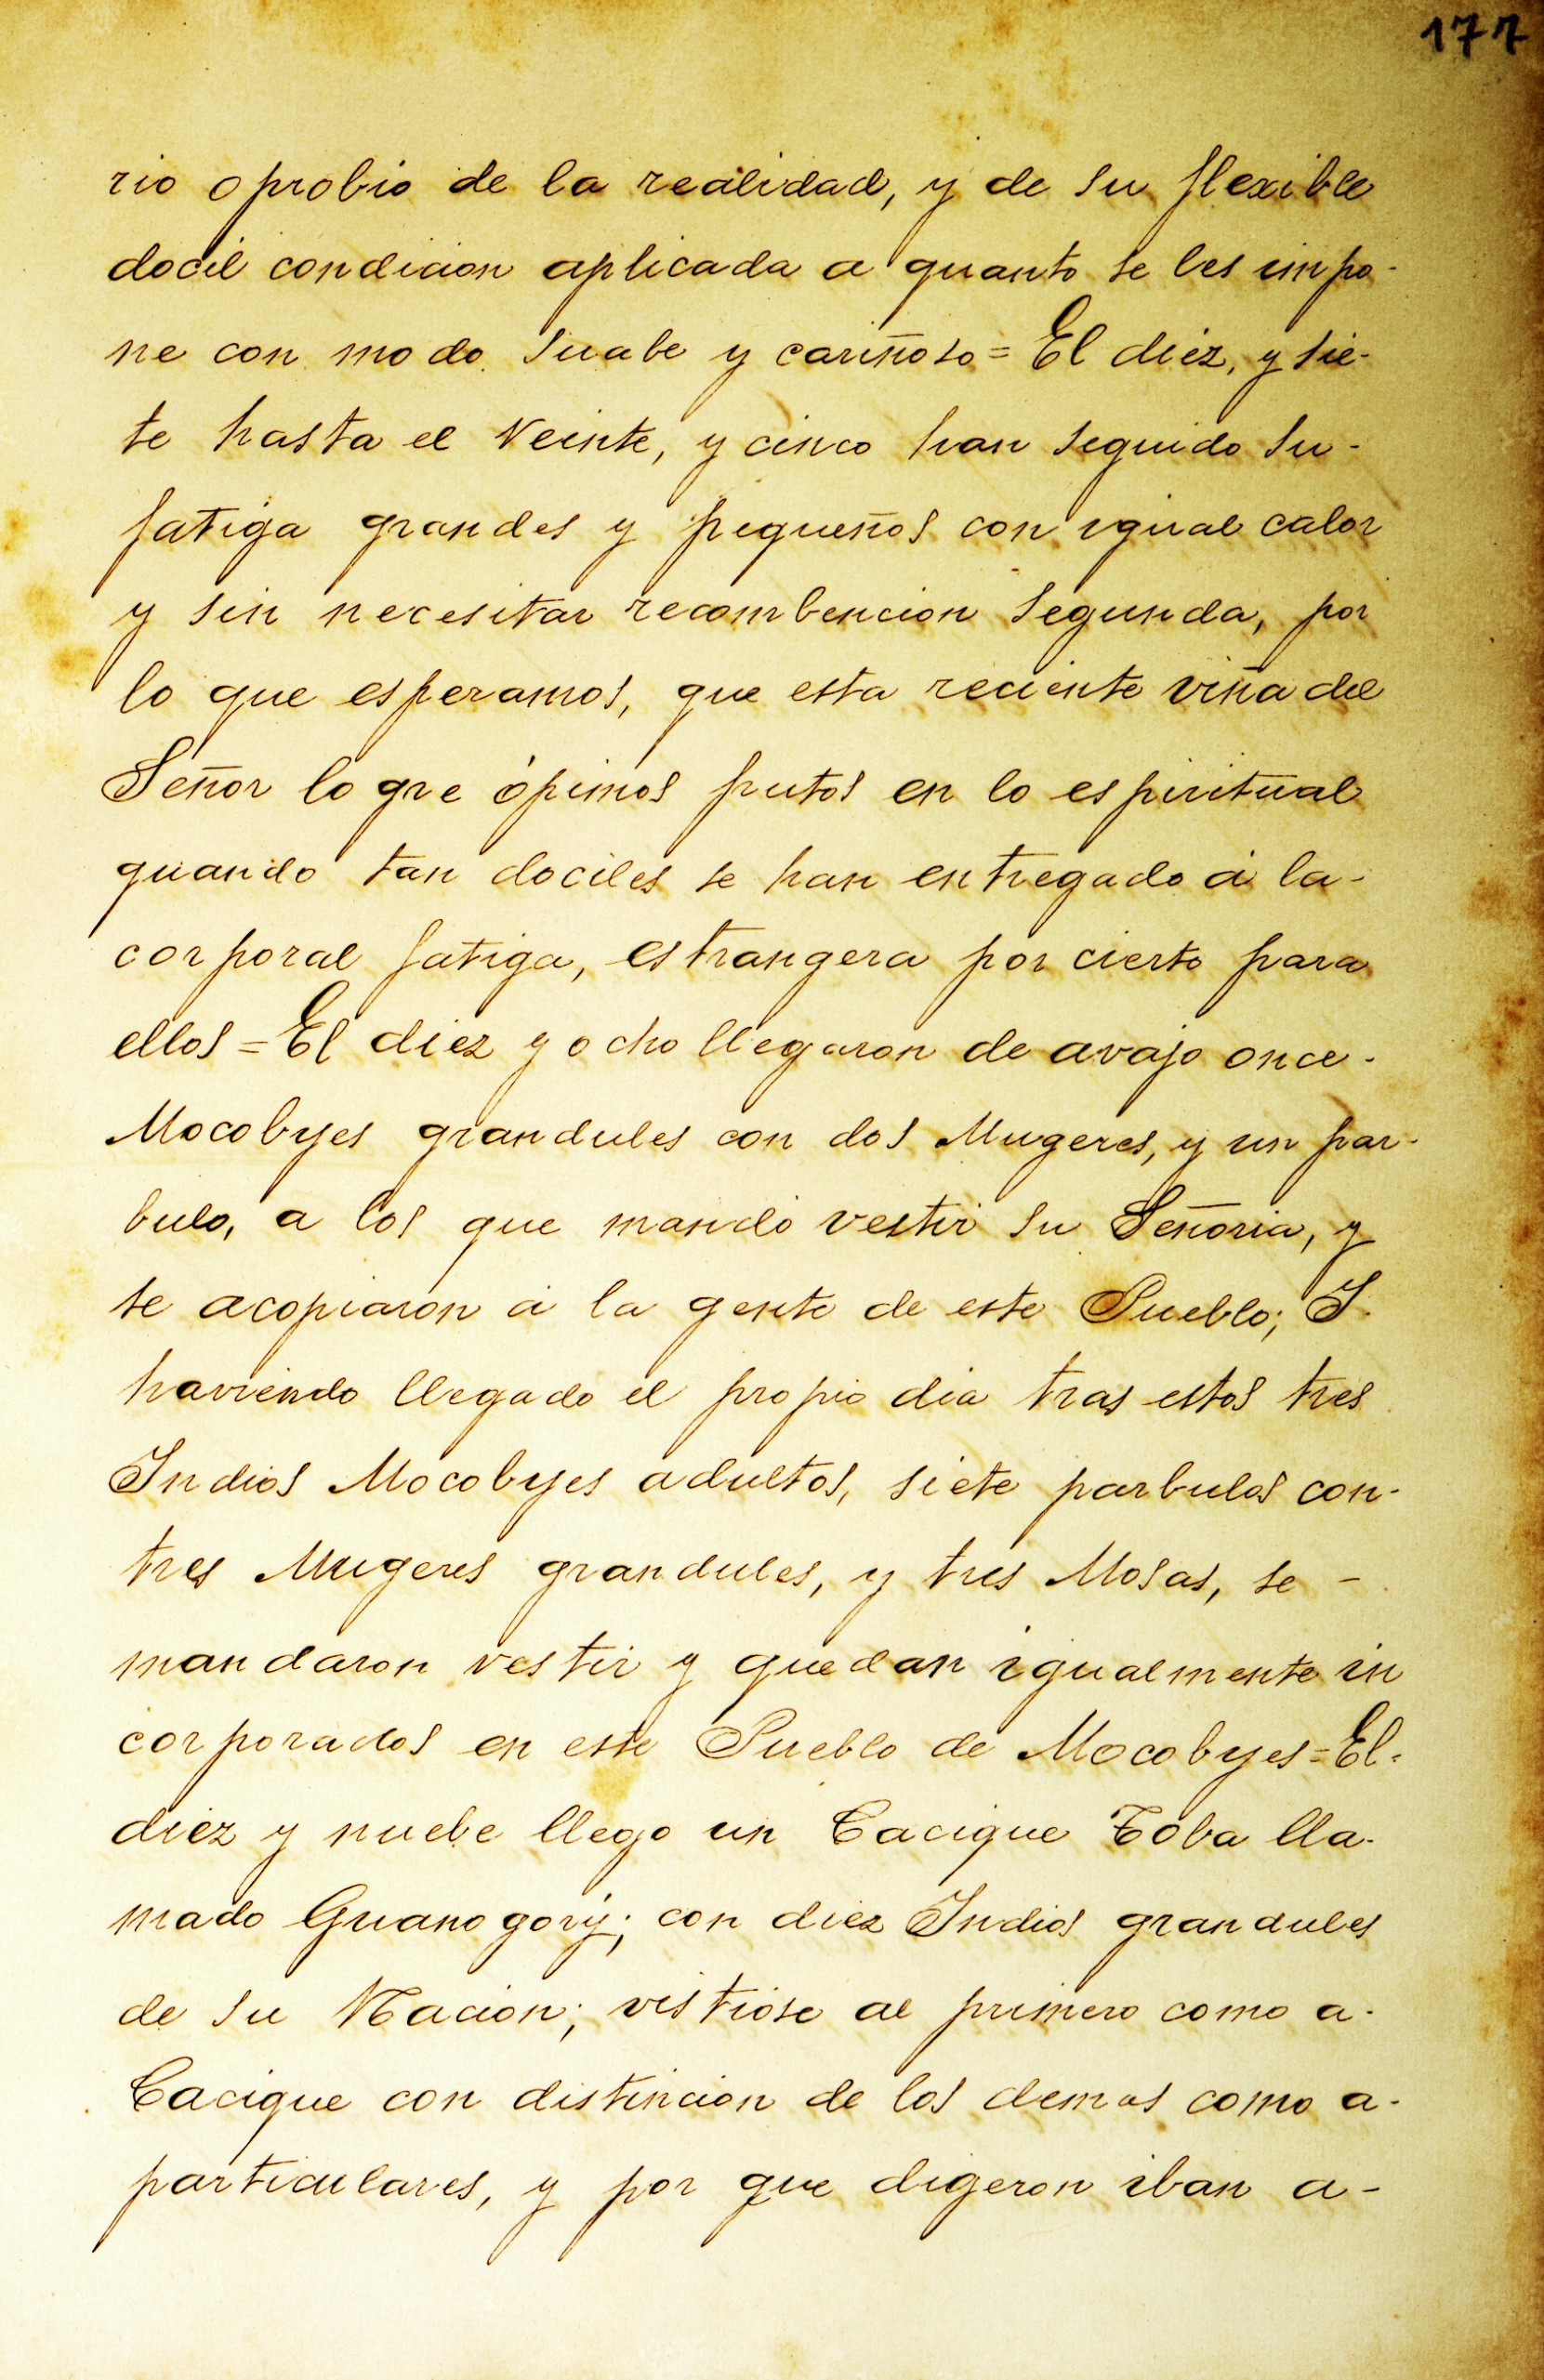 177
rio oprobio de la realidad, y de su flexible
docil condicion aplicada a quanto se les impo-
ne con modo suabe y cariñoso = El diez, y sie-
te hasta el veinte, y cinco han seguido su-
fatiga grandes y pequeños con igual calor
y sin necesitar recombencion segunda, por
lo que esperamos, que esta reciente viña del
Señor logre ópimos frutos en lo espiritual
quando tan dociles se han entregado á la-
corporal fatiga, estrangera por cierto para
ellos = El diez y ocho llegaron de avajo once-
Mocobyes grandules con dos Mugeres, y un par-
bulo, a los que mandó vestir su Señoria, y
se acopiaron á la gente de este Pueblo; Y-
haviendo llegado el propio dia tras estos tres
Indios Mocobyes adultos, siete parbulos con-
tres Mugeres grandules, y tres Mosas, se -
mandaron vestir y quedan igualmente in
corporados en este Pueblo de Mocobyes = El-
diez y nuebe llego un Cacique Toba lla-
mado Guanogorý; con diez Indios grandules
de su Nacion; vistióse al primero como a-
Cacique con distincion de los demas como a-
particulares, y por que digeron iban a-